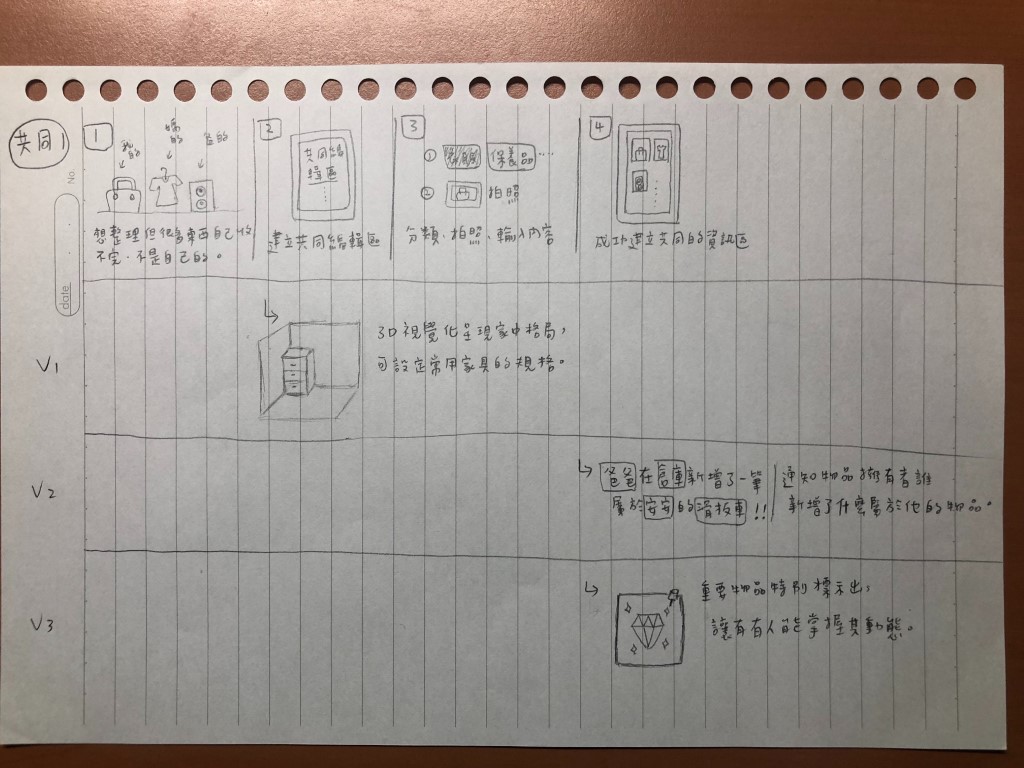 共同1
No.
date
1
我的
媽的
爸的
想整理但很多東西自己收
不完,不是自己的。
2
共同編
輯區
...
建立共同編輯區
3
① 保養品 ....
② 拍照
分類、拍照、輸入內容
4
成功建立共同的資訊區
V1
3D視覺化呈現家中格局,
可設定常用家具的規格。
V2
爸爸在倉庫新增了一筆
屬於安安的滑板車!!
通知物品擁有者誰
新增了什麼屬於他的物品。
V3
重要物品特別標示出,
讓有有人能掌握其動態。